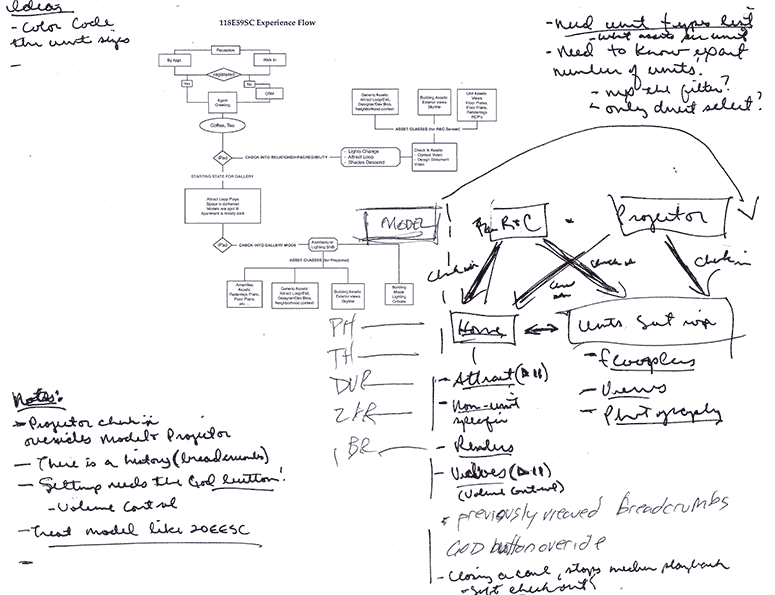 Ideas
- Color Code
the unit sizes
-
118E59SC Experience Flow
Reception
By Appt.
Walk In
(registered)
Yes
No
CRM
Agent
Greeting
Coffee, Tea
iPad
CHECK INTO RELATIONSHIP&CREDIBILITY
- Lights Change
- Attract Loop
- Shades Descend
Check In Assets:
- Context Video
- Design Statement
Video
ASSET CLASSES (for R&C Sensor)
Generic Assets:
Attract Loop/Esh,
Designer/Dev Bios,
Neighborhood context.
Building Assets:
Exterior views
Skyline
Unit Assets
Views
Floor Plans,
Floor Plans,
Renderings
STARTING STATE FOR GALLERY
Attract Loop Plays
Space is darkened
Models are spot lit
Apartment is mostly dark
iPad
CHECK INTO GALLERY MODE
Architectural
Lighting Shift
ASSET CLASSES (for Projector)
Amenities
Assets:
Floor Plans,
etc...
Generic Assets:
Attract Loop/Esh,
Designer/Dev Bios,
Neighborhood context.
Building Assets:
Exterior views
Skyline
Building
Model
Lighting
- Need unit types list
- what assets per unit
- Need to know exact
number of units.
- nip the filter?
- only direct select?
MODEL
R+C
-
Projector
check in
check in
Home
Units
PH
TH
DUP
2BR
1BR
- Attract
- Non-unit
specific
- Renders
- Videos
(Volume Control)
- Floorplans
- Views
- Photography
* previously viewed Breadcrumbs
GOD button overide
- Closing a card, stops median playback
- Soft checkout
Notes:
- Projector check in
overrides Model & Projector
- There is a history (breadcrumbs)
- Setting needs the God button!
- Volume Control
- Treat model like 20EESC
-